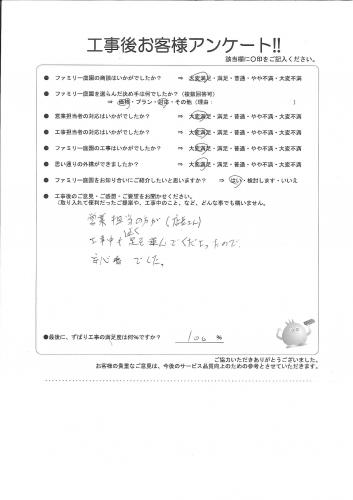 工事後お客様アンケート!!
該当欄に〇印をご記入ください。
● ファミリー庭園の商談はいかがでしたか？ ⇒ 大変満足・満足・普通・やや不満・大変不満
● ファミリー庭園を選らんだ決め手は何でしたか？（複数回答可）
⇒ 価格・プラン・対応・その他（理由： ）
● 営業担当者の対応はいかがでしたか？ ⇒ 大変満足・満足・普通・やや不満・大変不満
● 工事担当者の対応はいかがでしたか？ ⇒ 大変満足・満足・普通・やや不満・大変不満
● ファミリー庭園の工事はいかがでしたか？ ⇒ 大変満足・満足・普通・やや不満・大変不満
● 思い通りの外構ができましたか？ ⇒ 大変満足・満足・普通・やや不満・大変不満
● ファミリー庭園をお知り合いにご紹介したいと思いますか？ ⇒ はい・検討します・いいえ
● 工事後のご意見・ご感想・ご要望をお聞かせください。
（取り入れて便利だったご提案や、工事中のこと、など、どんな事でも構いません。
営業担当の方が（店長さん）
工事中も良く足を運んでくださったので、
安心 でした。
●最後に、ずばり工事の満足度は何％ですか？ 100 ％
ご協力いただきありがとうございました。
お客様の貴重なご意見は、今後のサービス品質向上のための参考とさせていただきます。